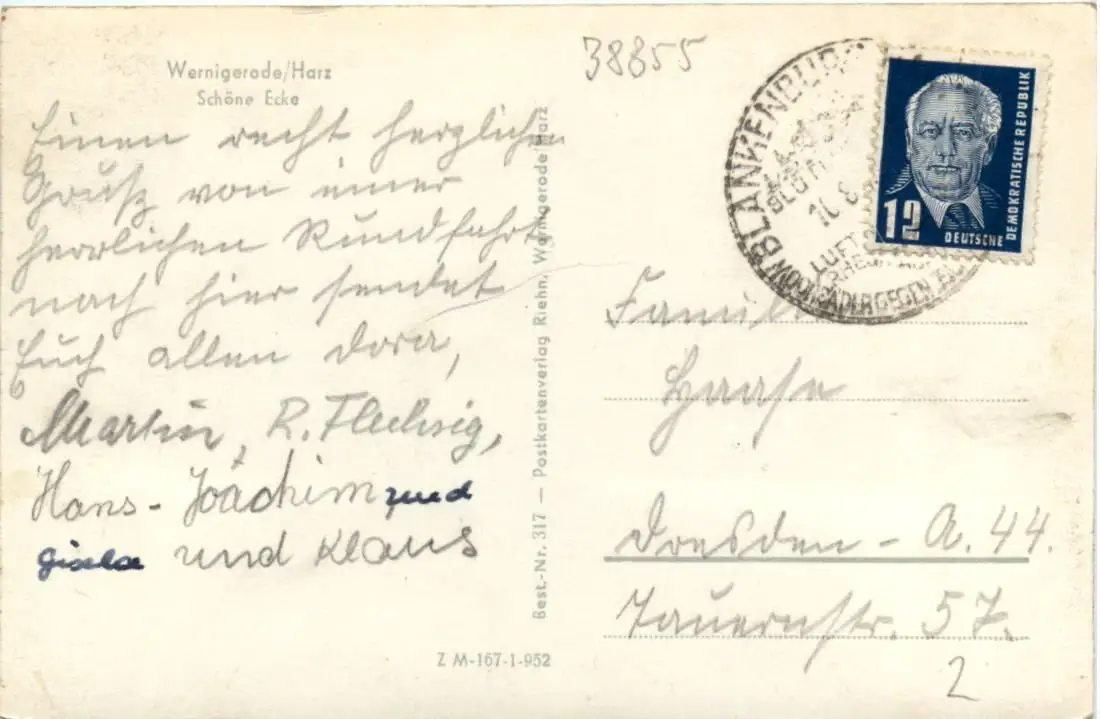 Wernigerode/Harz
Schöne Ecke
Einen recht herzlichen
Gruß von einer
herrlichen Rundfahrt
nach hier sendet
Euch allen Dora,
Martin, R. Flechsig,
Hans-Joachim und
Gisela und Klaus
Best.-Nr. 317 — Postkartenverlag Riehn, Wernigerode/Harz
Z M-167-1-952
38855
BLANKENBURG
16. 8.
LUFT
GEGEN
12
DEUTSCHE
DEMOKRATISCHE REPUBLIK
Familie
Haase
Dresden - A. 44.
Tauernstr. 57.
2